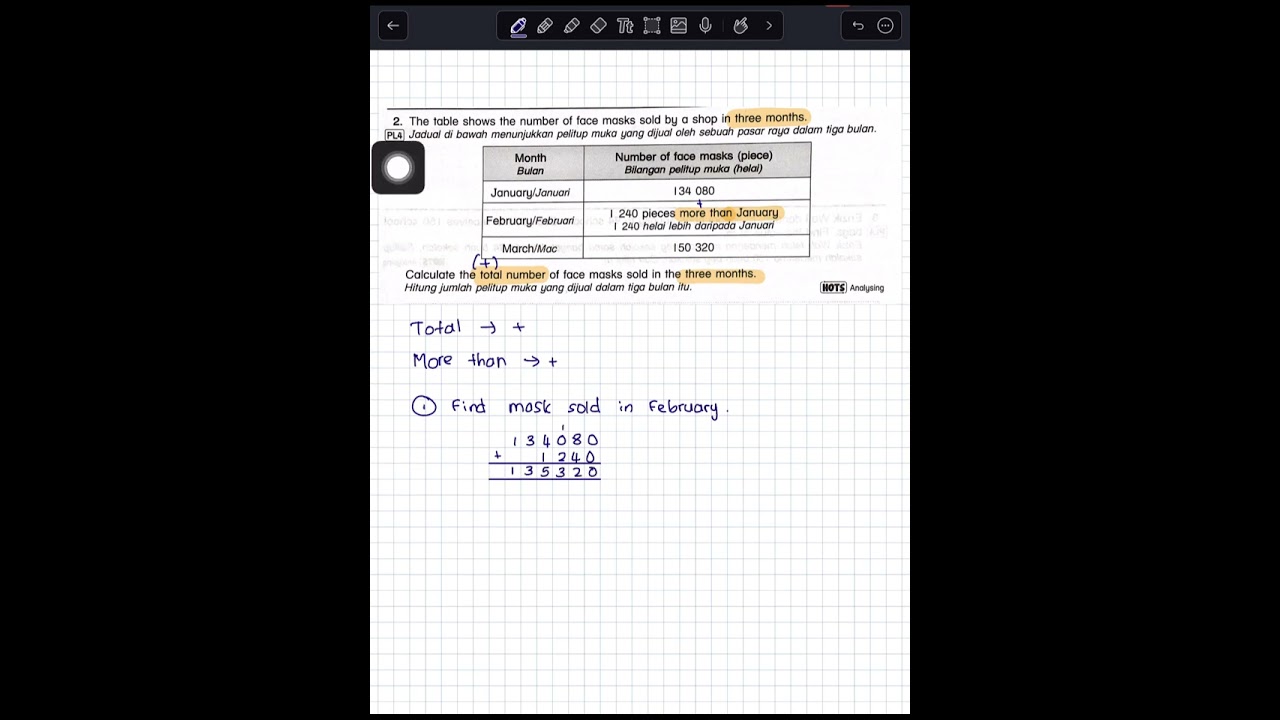 Tt
2. The table shows the number of face masks sold by a shop in three months.
PL4 Jadual di bawah menunjukkan pelitup muka yang dijual oleh sebuah pasar raya dalam tiga bulan.
Month Number of face masks (piece)
Bulan Bilangan pelitup muka (helai)
January/Januari 134 080
+
February/Februari 1 240 pieces more than January
1 240 helai lebih daripada Januari
March/Mac 150 320
(+)
Calculate the total number of face masks sold in the three months.
Hitung jumlah pelitup muka yang dijual dalam tiga bulan itu. HOTS Analysing
Total → +
More than → +
1 Find mask sold in February.
1
134080
+ 1240
135320